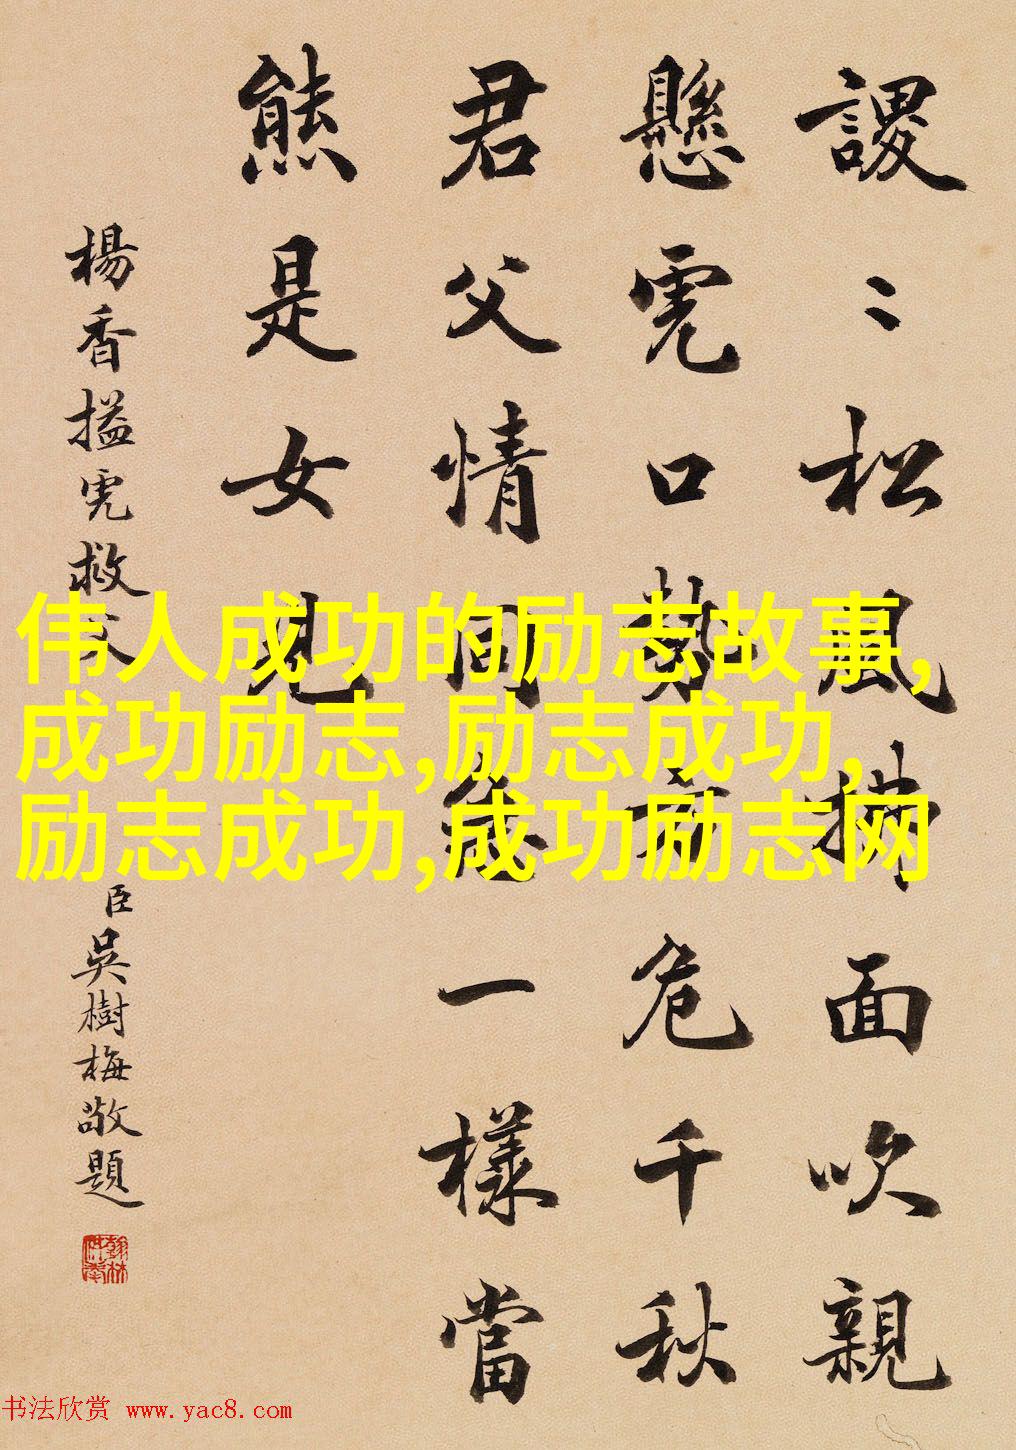 謖〻松風拂面吹親
懸虎口勢方危千秋
君父情同急一樣當
熊是女兒
楊香搤虎救父
臣吳樹梅敬題
伟人成功的励志故事,
成功励志,励志成功,
励志成功,成功励志网
书法欣赏 www.yac8.com